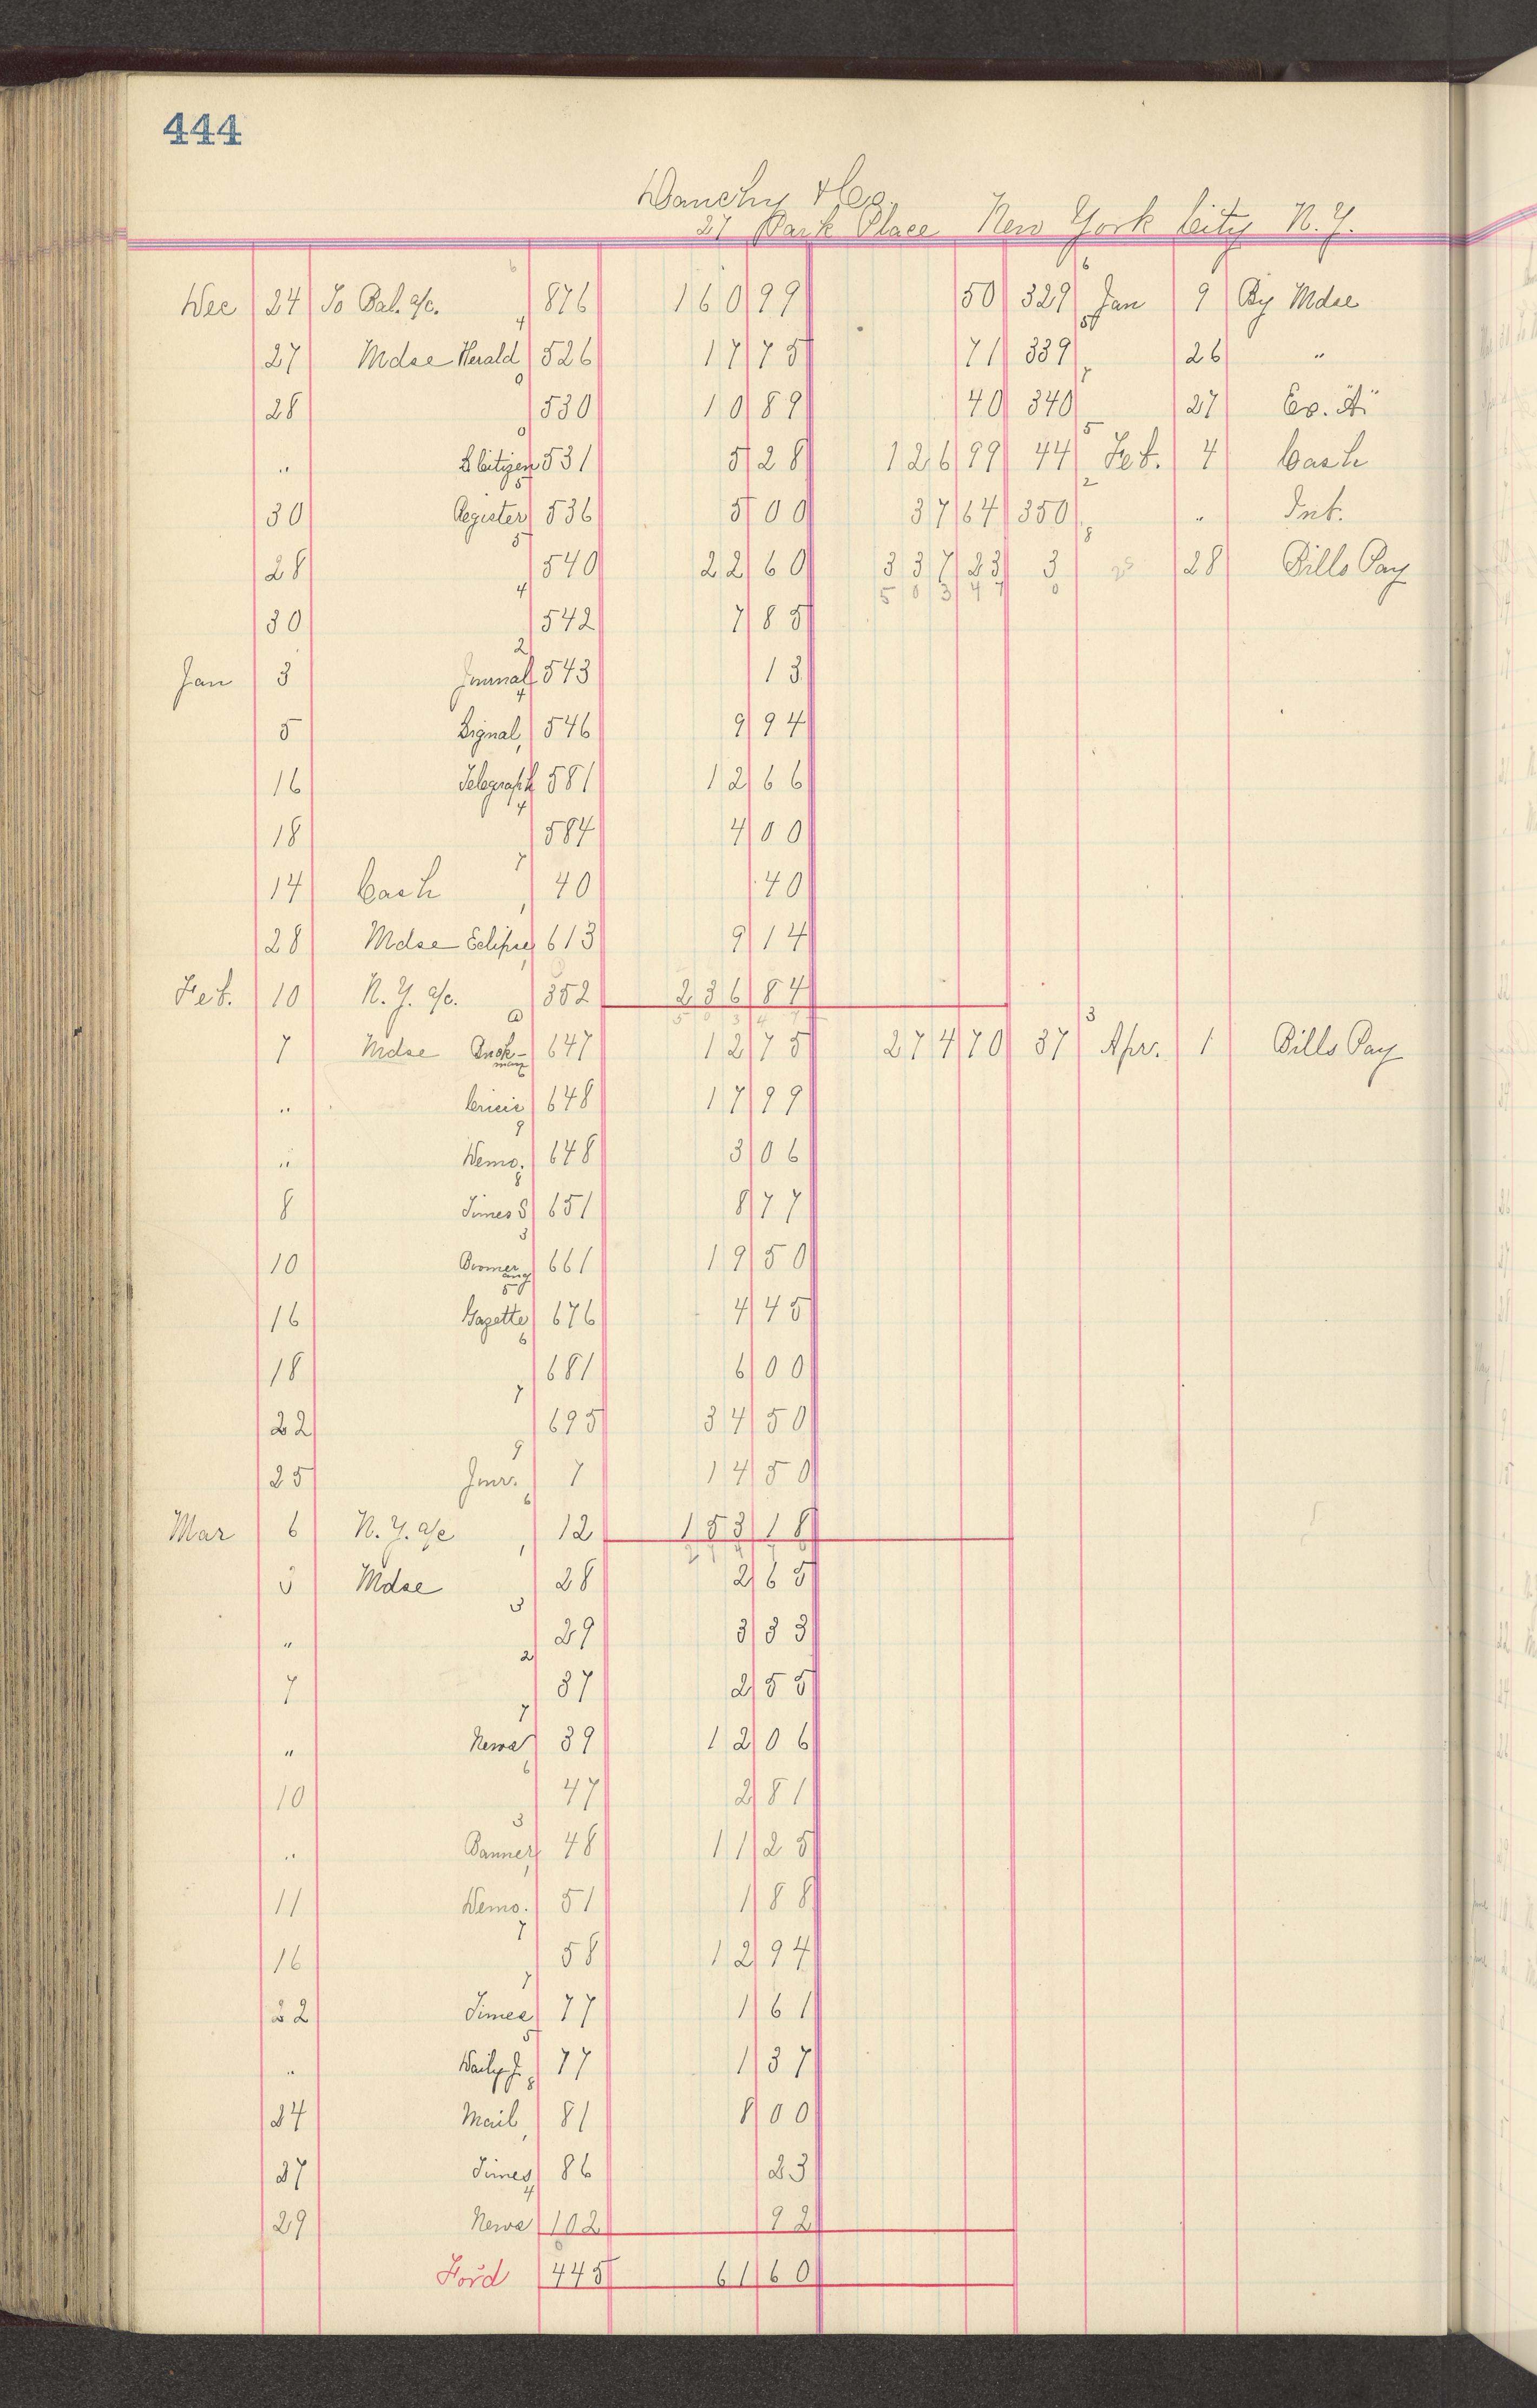 444
Dauchy & Co.
27 Park Place New York City N. Y.
Dec 24 To Bal. a/c. 876 160 99 50 329 Jan 9 By Mdse
27 Mdse Herald 526 17 75 71 339 26 "
28 530 10 89 40 340 27
" Citizen 531 5 28 126 99 44 Feb. 4 Cash
30 Register 536 5 00 37 64 350 " Int.
28 540 22 60 337 23 3 28 Bills Pay
503 47
30 542 7 85
Jan 3 Journal 543 13
5 Signal 546 9 94
16 Telegraph 581 12 66
18 584 4 00
14 Cash 40 40
28 Mdse Eclipse 613 9 14
Feb. 10 N. Y. a/c. 352 236 84
503 47
7 Mdse 647 12 75 274 70 37 Apr. 1 Bills Pay
" 648 17 99
" Demo. 648 3 06
8 Times 651 8 77
10 Boomerang 661 19 50
16 Gazette 676 4 45
18 681 6 00
22 695 34 50
25 Jour. 7 14 50
Mar 6 N. Y. a/c 12 153 18
5 Mdse 28 2 65
" 29 3 33
7 37 2 55
" News 39 12 06
10 47 2 81
" Banner 48 11 25
11 Demo. 51 1 88
16 58 12 94
22 Times 77 1 61
" Daily J. 77 1 37
24 Mail 81 8 00
27 Times 86 23
29 News 102 92
Ford 445 61 60